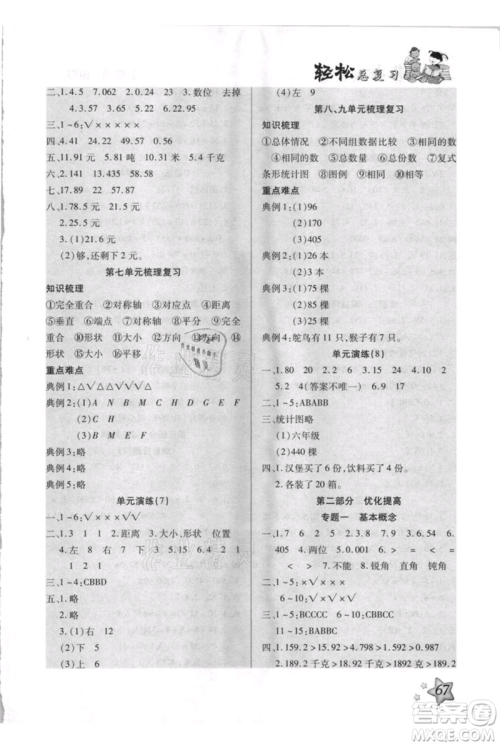 轻松总复习
二、1.4.5 7.062 2.0.0 23 3.0.24 数位 去掉
4.3.57 5.>> 6.22.95
三、1~6:√√××××
四、2.141 5.124 15 9.58
五、11.91元 2.5.81吨 3.1.29米 4.2.6元
六、2.131 9.635 35.83
七、17.89 82 57 9.88
八、1.5.5元
2.25.5元
3.(1)21.6元
(2)够,还剩下2.2元
第七单元梳理复习
知识梳理
①完全重合 ②对称轴 ③对应点 ④对称轴
⑤垂直 ⑥端点 ⑦对称点 ⑧对称轴 ⑨完全
重合 ⑩形状 ⑪大小 ⑫方向 ⑬方向 ⑭
形状 ⑮大小 ⑯平移
重点难点
典例1:△√△√△√△√√
典例2:(1)A B C D E H
(2)H
(3)B E F
典例3:略
典例4:略
典例5:略
单元演练(7)
一、1~6:√√××××
二、1.方向 2.B 3.大小、形状 位置
4.左 8 右 7 下 5
三、1~4:CBBD
五、1.略
2.略
3.(1)右 12
(2)下 6
(3)上 5
(4)左 9
第八、九单元梳理复习
知识梳理
①总体情况 ②不同组数据比较 ③优化
④相同的数 ⑤总数 ⑥总份数 ⑦复式
条形统计图 ⑧图例 ⑨相同的 ⑩相等
重点难点
典例1:(1)96
(2)170
(3)405
典例2:(1)2本
(2)3本
典例3:(1)75棵
(2)185棵
(3)90棵
典例4:鸵鸟有11只,猴子有7只
单元演练(8)
一、1.80 20 2.2 6 3.5 15 24
4.2 4 5.2(答案不唯一) 6.9 17
二、1~5:ABABB
三、统计图略
(1)六年级
(2)440
四、1.汉堡买了4个,热饮买了4份。
2.各装了20箱。
第二部分 优化提高
专题一 基本概念
一、1.7 6 5 2.2 < 3.47 48 4.
405 4.两位 5.不能 6.锐角 钝角
7.15 31
二、1~5:√√×××
三、1~5:BCCCC 6~10:BBCBB
11~15:BABBC
四、1.159.2>15.92>1.592>0.987
2.189.2千克>1892克>1892千克
67